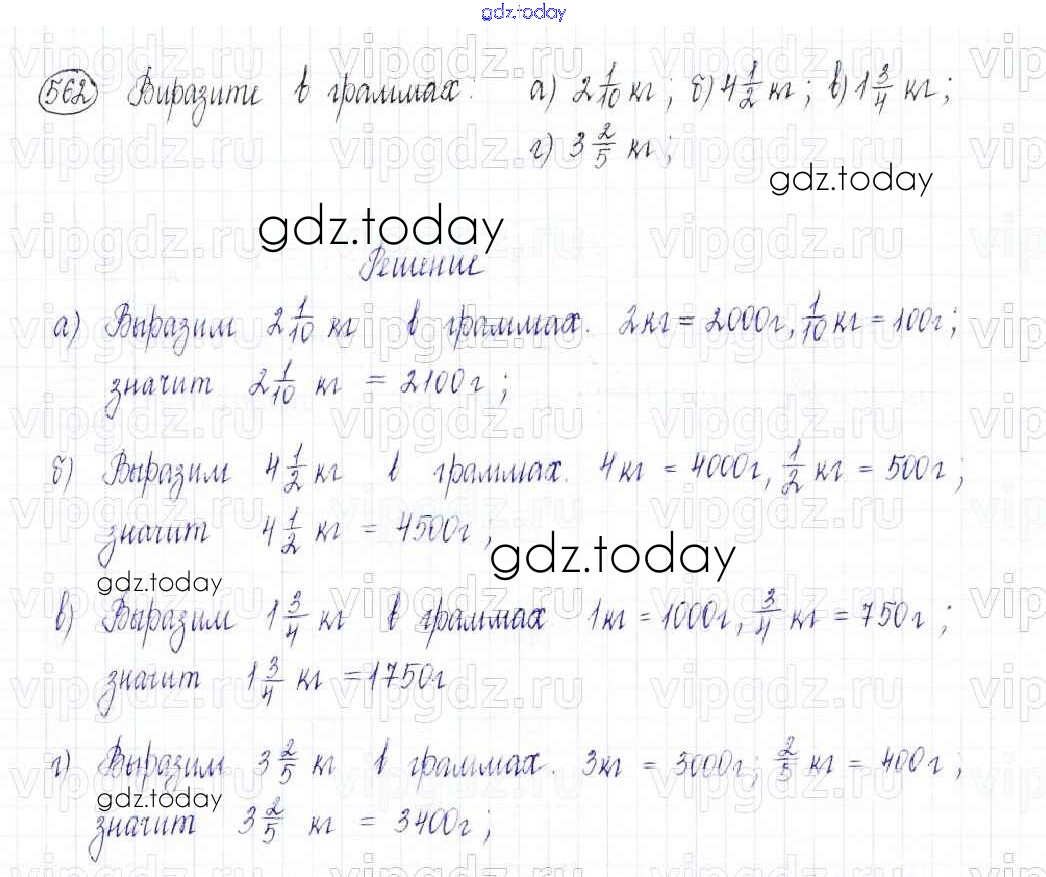 gdz.today
562 Выразите в граммах: а) 2 1/10 кг; б) 4 1/2 кг; в) 1 3/4 кг;
г) 3 2/5 кг;
gdz.today
gdz.today
Решение
а) Выразим 2 1/10 кг в граммах. 2кг = 2000г, 1/10 кг = 100г;
значит 2 1/10 кг = 2100г;
б) Выразим 4 1/2 кг в граммах. 4кг = 4000г, 1/2 кг = 500г;
значит 4 1/2 кг = 4500г;
gdz.today
gdz.today
в) Выразим 1 3/4 кг в граммах 1кг = 1000г, 3/4 кг = 750г;
значит 1 3/4 кг = 1750г
г) Выразим 3 2/5 кг в граммах. 3кг = 3000г; 2/5 кг = 400г;
gdz.today
значит 3 2/5 кг = 3400г;